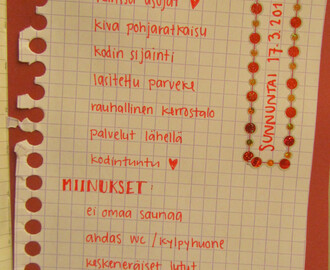 kiva pohjaratkaisu
kodin sijainti
lasitettu parveke
rauhallinen kerrostalo
palvelut lähellä
kodintuntu ♥
MIINUKSET:
ei omaa saunaa
ahdas wc / kylpyhuone
keskeneräiset
SUNNUNTAI 17.3.201